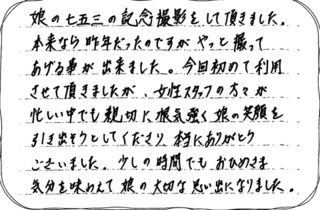 娘の七五三の記念撮影をして頂きました。
本来なら昨年だったのですがやっと撮って
あげる事が出来ました。今回初めて利用
させて頂きましたが、女性スタッフの方々が
忙しい中でも親切に根気強く娘の笑顔を
引き出そうとしてくださり本当にありがとう
ございました。少しの時間でもおひめさま
気分を味わえて娘の大切な思い出になりました。